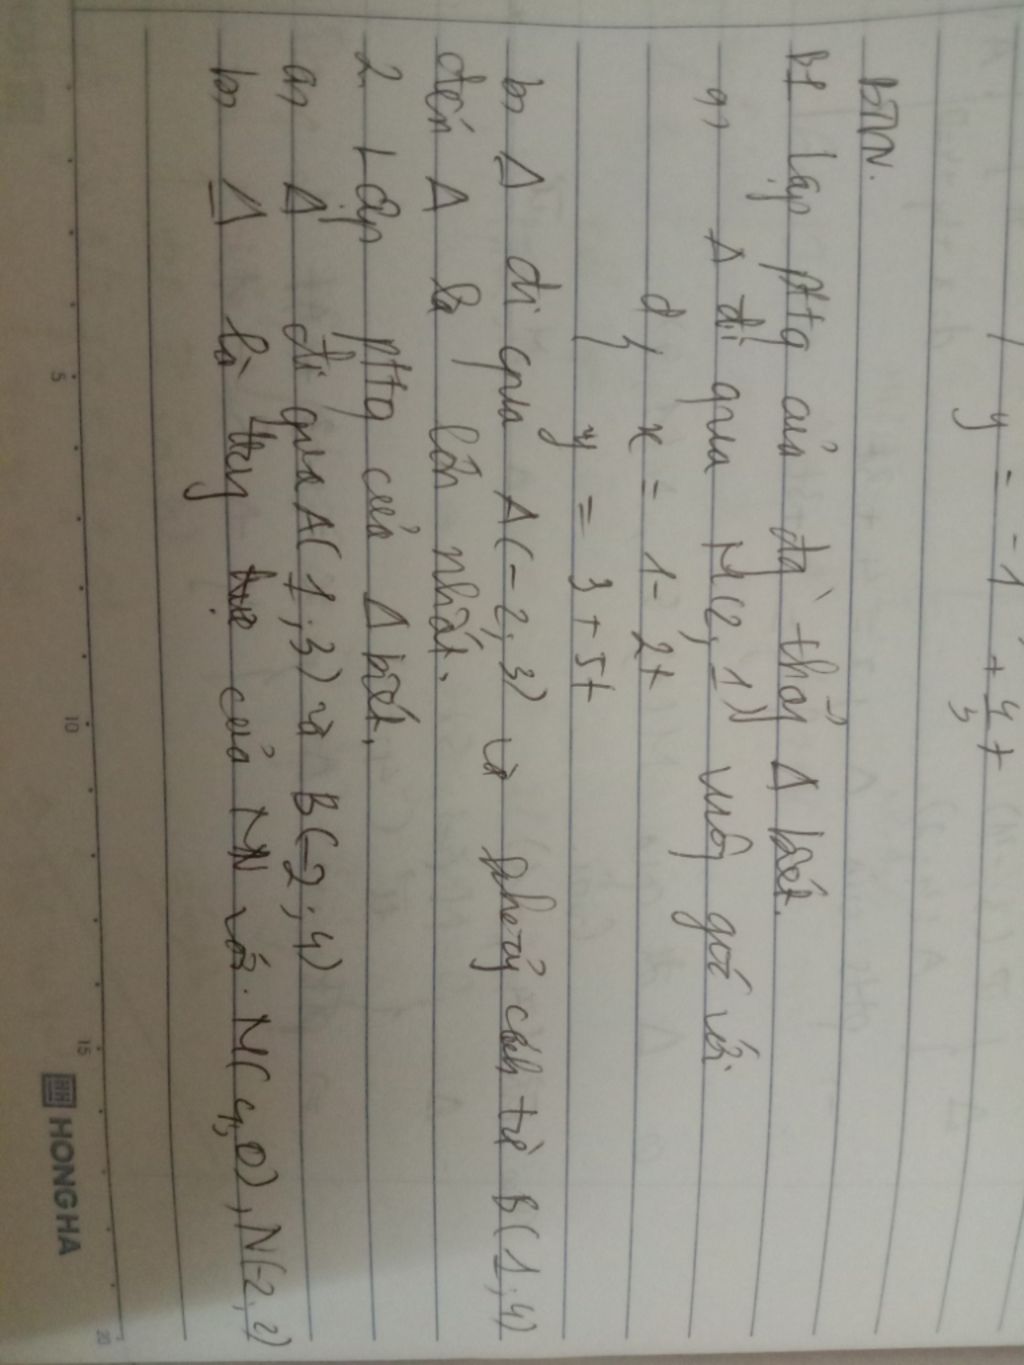 y = -1 + 4/3 t
BTVN.
B1 Lập pttq của đg thẳg Δ biết.
a, Δ đi qua M(2, 1) vuôg góc với
d { x = 1 - 2t
y = 3 + 5t
b, Δ đi qua A(-2, 3) và khoảg cách từ B(1, 4)
đến Δ là lớn nhất.
2 Lập pttq của Δ biết.
a, Δ đi qua A(1; 3) và B(-2; 4)
b, Δ là đg trực của MN với. M(4, 0), N(-2, 2)
HONG HA
5
10
15
20